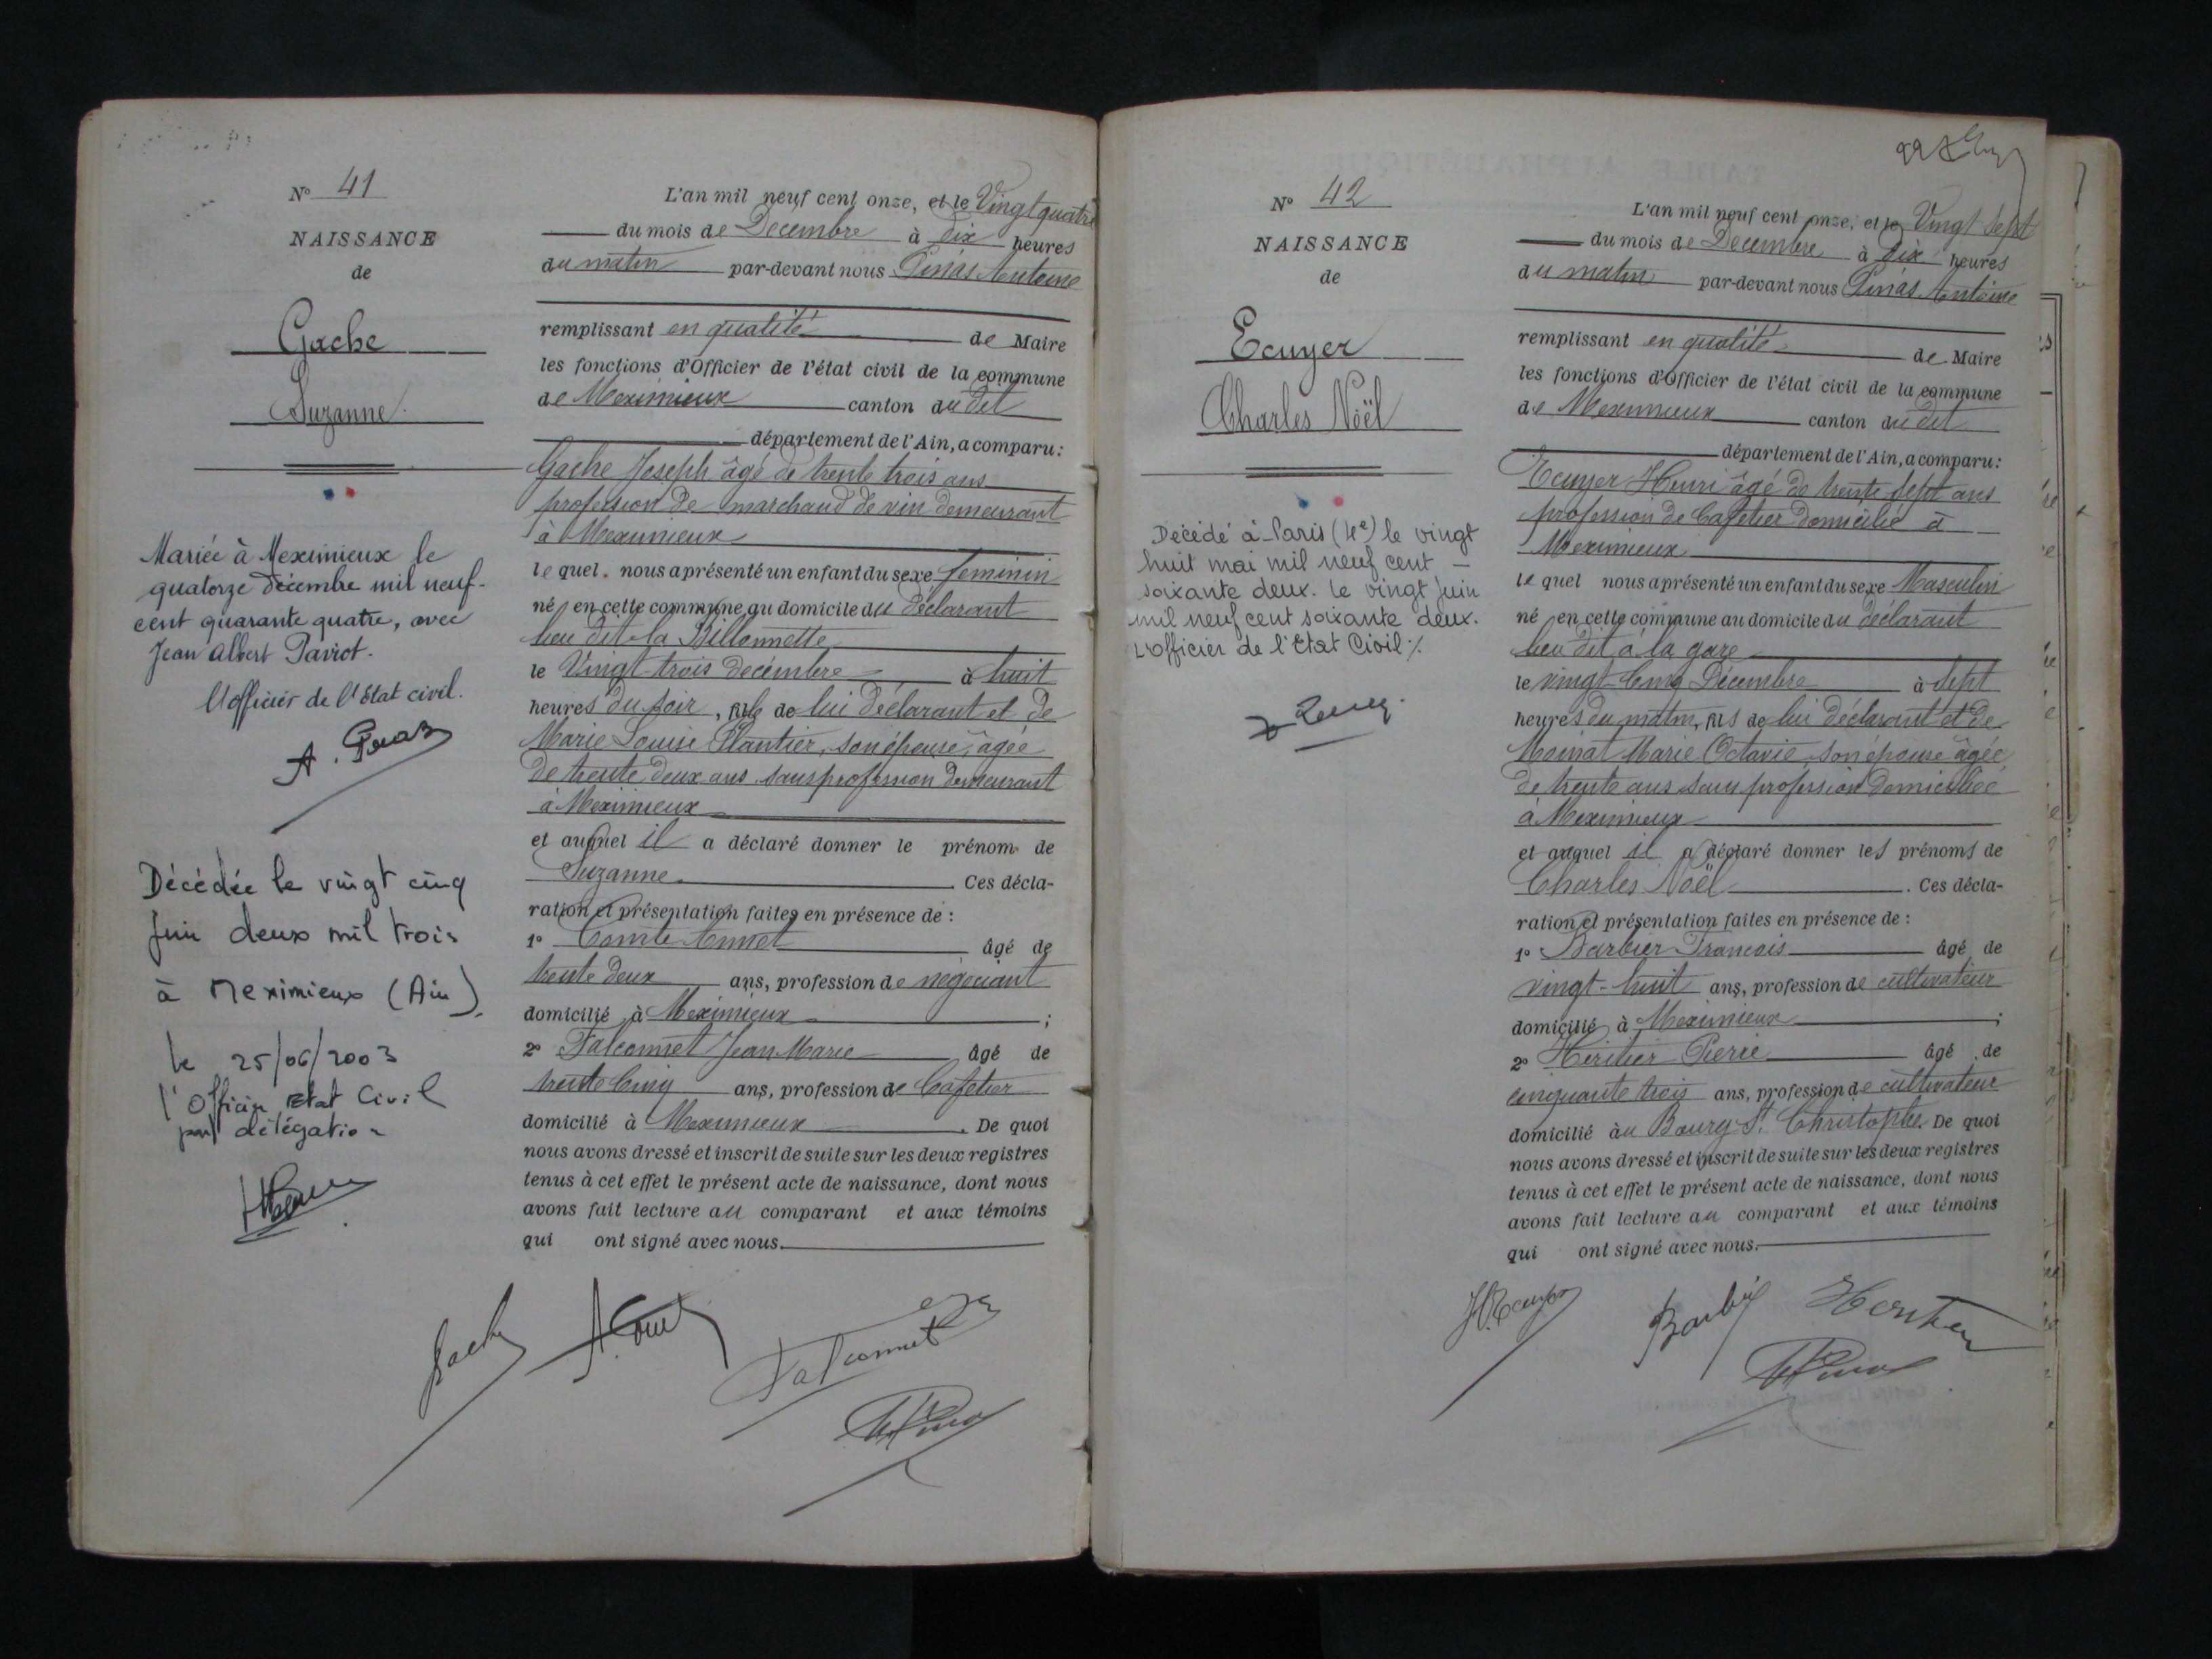 N° 41
NAISSANCE
de
Gache
Suzanne
Mariée à Meximieux le
quatorze décembre mil neuf-
cent quarante quatre, avec
Jean Albert Paviot.
l'officier de l'Etat civil.
Décédée le vingt cinq
Juin deux mil trois
à Meximieux (Ain).
le 25/06/2003
l'Officier Etat Civil
par délégation
L'an mil neuf cent onze, et le Vingt quatre
du mois de Décembre à dix heures
du matin par-devant nous Antoine
remplissant en qualité de Maire
les fonctions d'Officier de l'état civil de la commune
de Meximieux canton du dit
département de l'Ain, a comparu:
Gache Joseph âgé de trente trois ans
profession de marchand de vin demeurant
à Meximieux
lequel nous a présenté un enfant du sexe féminin
né en cette commune au domicile du déclarant
lieu dit la Billonnette
le Vingt trois décembre à huit
heures du soir, fille de lui déclarant et de
Marie Louise Plantier, son épouse, âgée
de trente deux ans sans profession demeurant
à Meximieux
et auquel il a déclaré donner le prénom de
Suzanne. Ces décla-
ration et présentation faites en présence de :
1° Comte Annet âgé de
trente deux ans, profession de négociant
domicilié à Meximieux ;
2° Falconnet Jean Marie âgé de
trente cinq ans, profession de Cafetier
domicilié à Meximieux. De quoi
nous avons dressé et inscrit de suite sur les deux registres
tenus à cet effet le présent acte de naissance, dont nous
avons fait lecture au comparant et aux témoins
qui ont signé avec nous.
Gache
Falconnet
N° 42
NAISSANCE
de
Ecuyer
Charles Noël
Décédé à Paris (4e) le vingt
huit mai mil neuf cent -
soixante deux. Le vingt juin
mil neuf cent soixante deux.
L'officier de l'Etat Civil ./.
L'an mil neuf cent onze, et le Vingt Sept
du mois de Décembre à dix heures
du matin par-devant nous Antoine
remplissant en qualité de Maire
les fonctions d'Officier de l'état civil de la commune
de Meximieux canton du dit
département de l'Ain, a comparu:
Ecuyer Henri âgé de trente sept ans
profession de Cafetier domicilié à
Meximieux
lequel nous a présenté un enfant du sexe Masculin
né en cette commune au domicile du déclarant
lieu dit à la gare
le vingt cinq Décembre à sept
heures du matin, fils de lui déclarant et de
Marie Octavie son épouse âgée
de trente ans sans profession domiciliée
à Meximieux
et auquel il a déclaré donner les prénoms de
Charles Noël. Ces décla-
ration et présentation faites en présence de :
1° Barbier François âgé de
vingt-huit ans, profession de cultivateur
domicilié à Meximieux ;
2° Héritier Pierre âgé de
cinquante trois ans, profession de cultivateur
domicilié au Bourg St. Christophe. De quoi
nous avons dressé et inscrit de suite sur les deux registres
tenus à cet effet le présent acte de naissance, dont nous
avons fait lecture au comparant et aux témoins
qui ont signé avec nous.